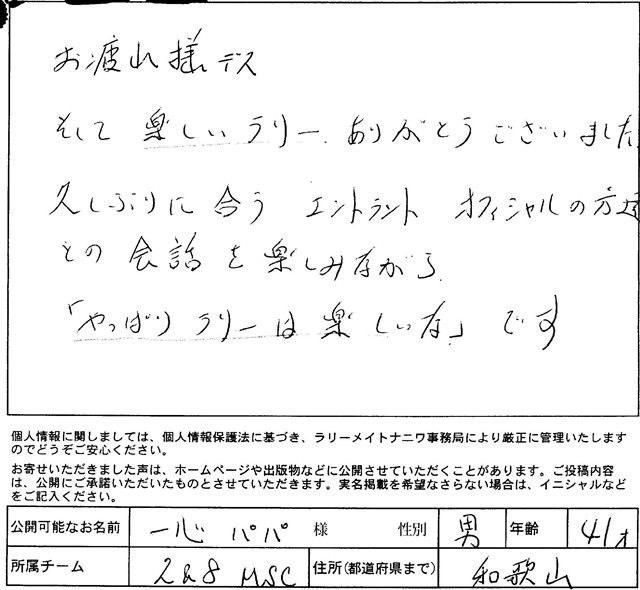 お疲れ様デス
そして 楽しいラリー、ありがとうございました
久しぶりに合う エントラント オフィシャルの方達
との会話を楽しみながら
「やっぱり ラリーは楽しいな」です
個人情報に関しましては、個人情報保護法に基づき、ラリーメイトナニワ事務局により厳正に管理いたします
のでどうぞご安心ください。
お寄せいただきました声は、ホームページや出版物などに公開させていただくことがあります。ご投稿内容
は、公開にご承諾いただいたものとさせていただきます。実名掲載を希望なさらない場合は、イニシャルなど
をご記入ください。
公開可能なお名前 一心パパ 様 性別 男 年齢 41才
所属チーム 2&8 MSC 住所(都道府県まで) 和歌山